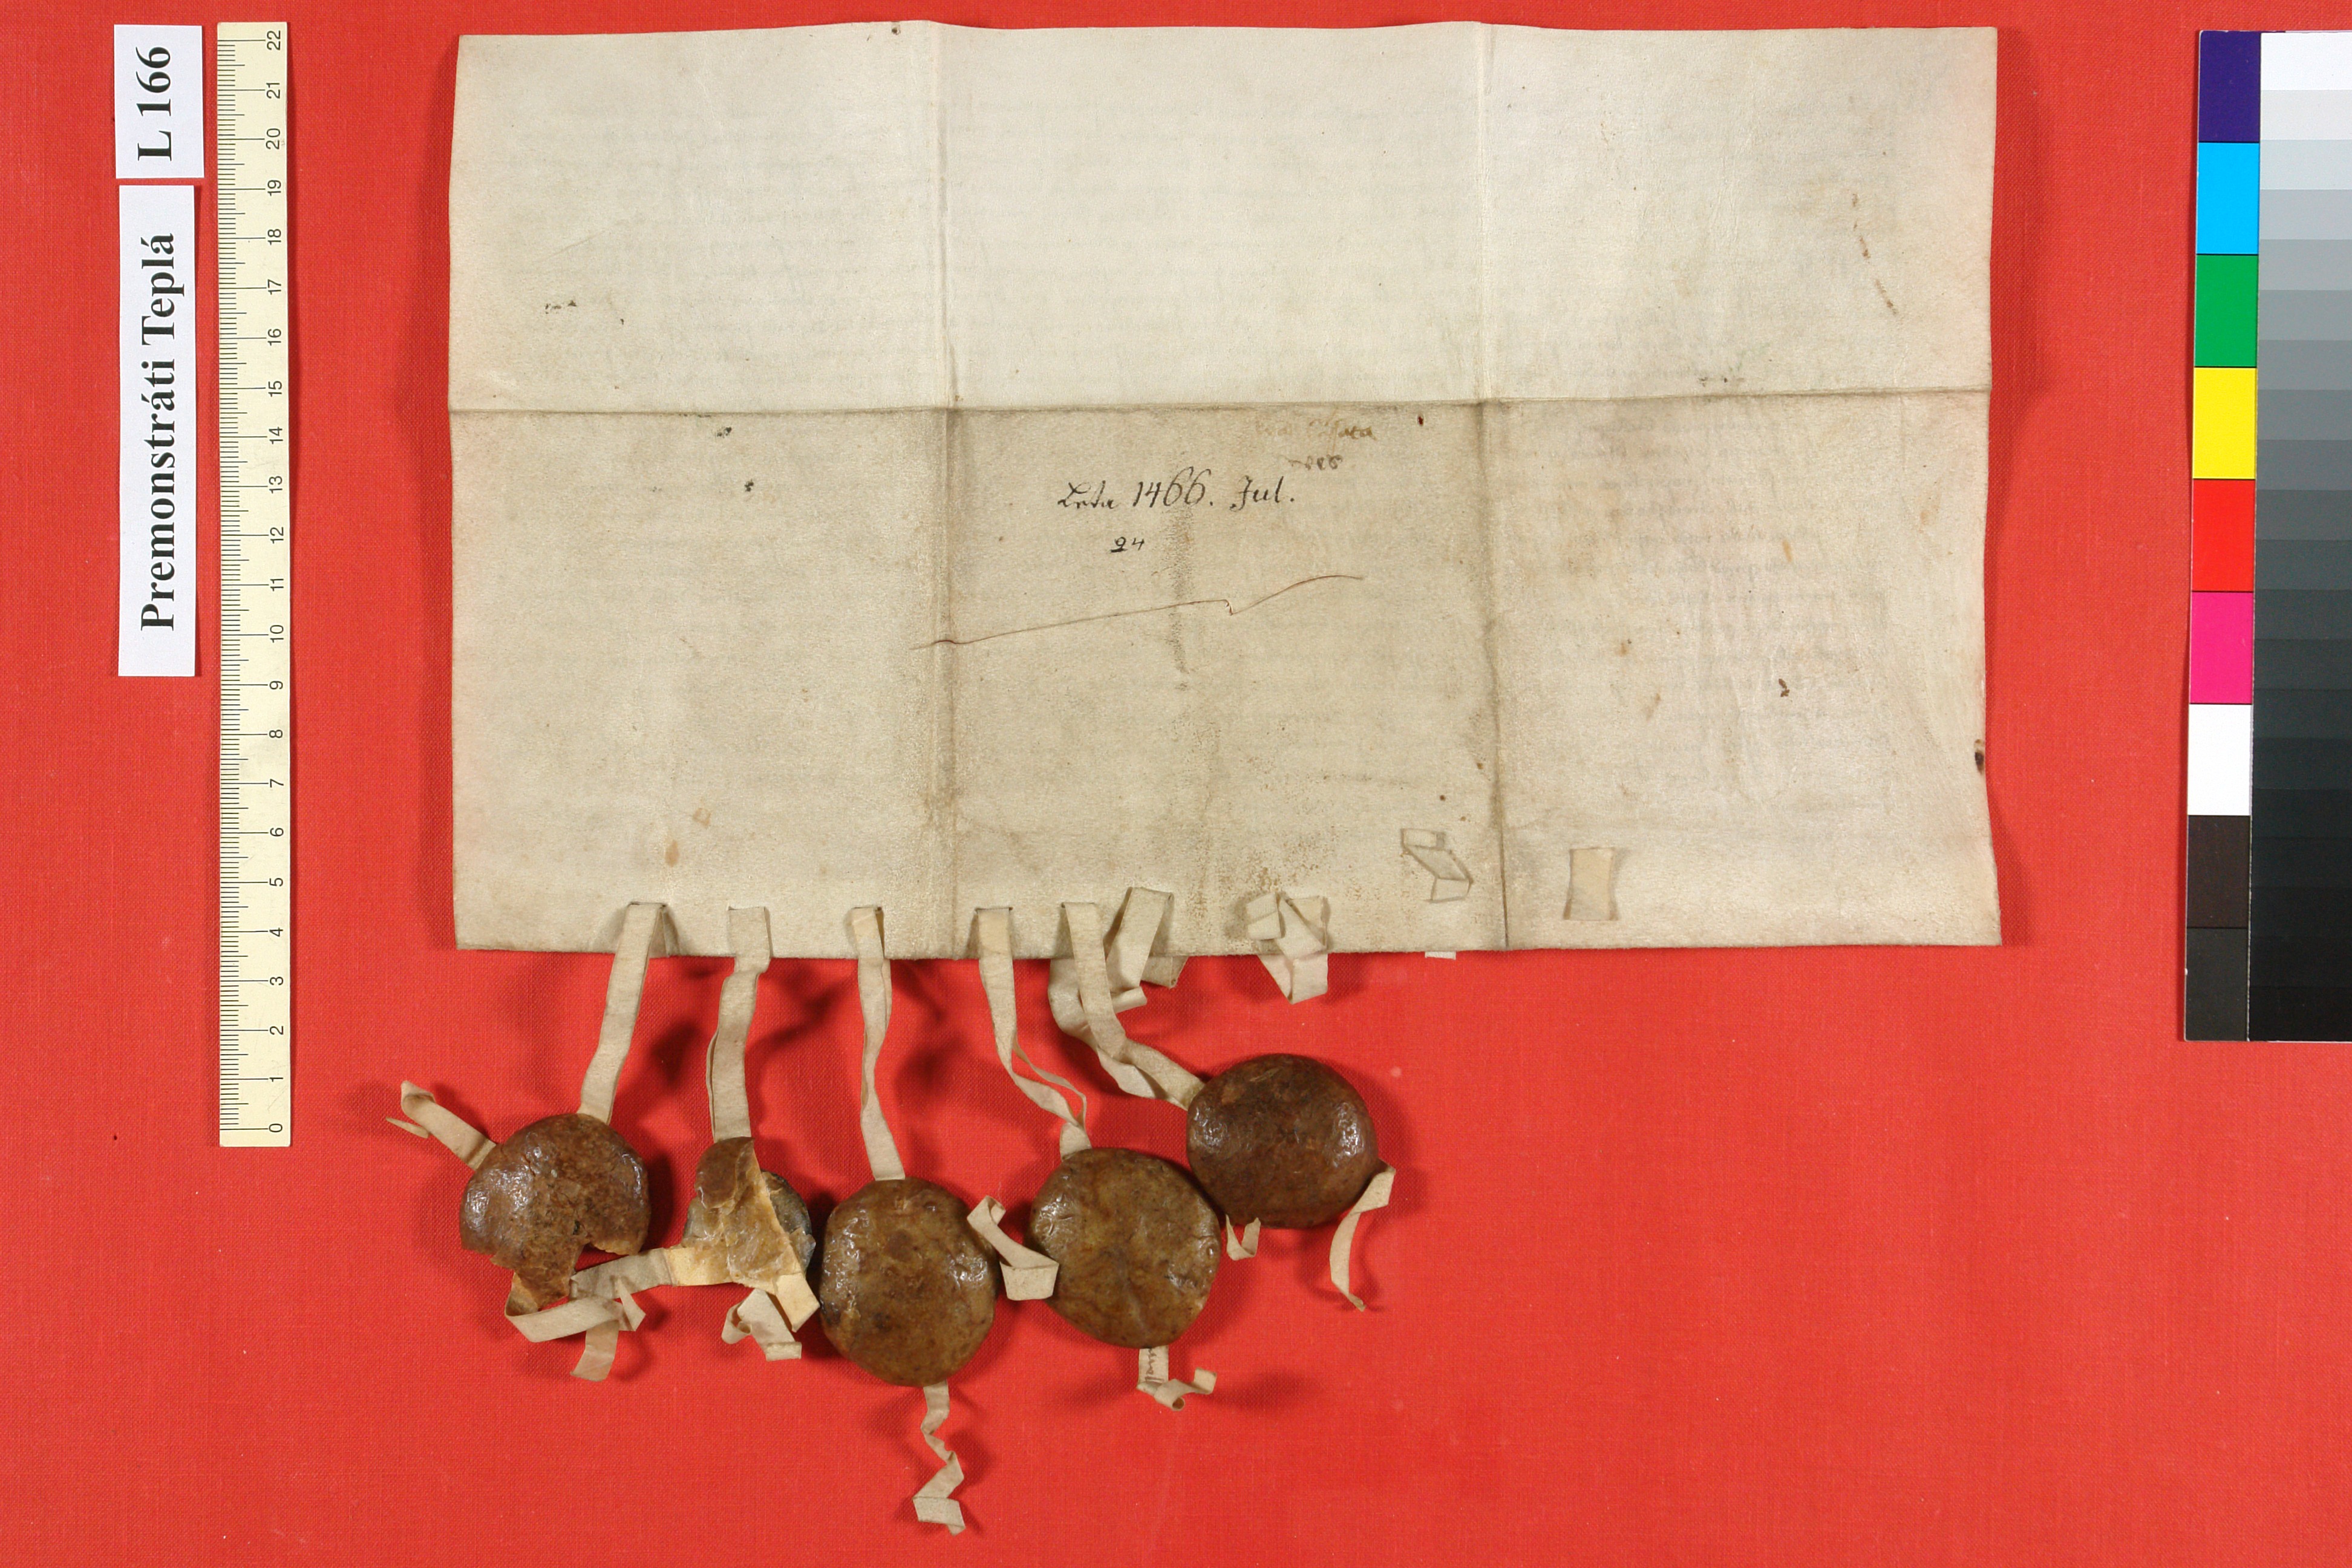 L 166
Premonstráti Teplá
22
21
20
19
18
17
16
15
14
13
12
11
10
9
8
7
6
5
4
3
2
1
0
Leta 1466. Jul.
24